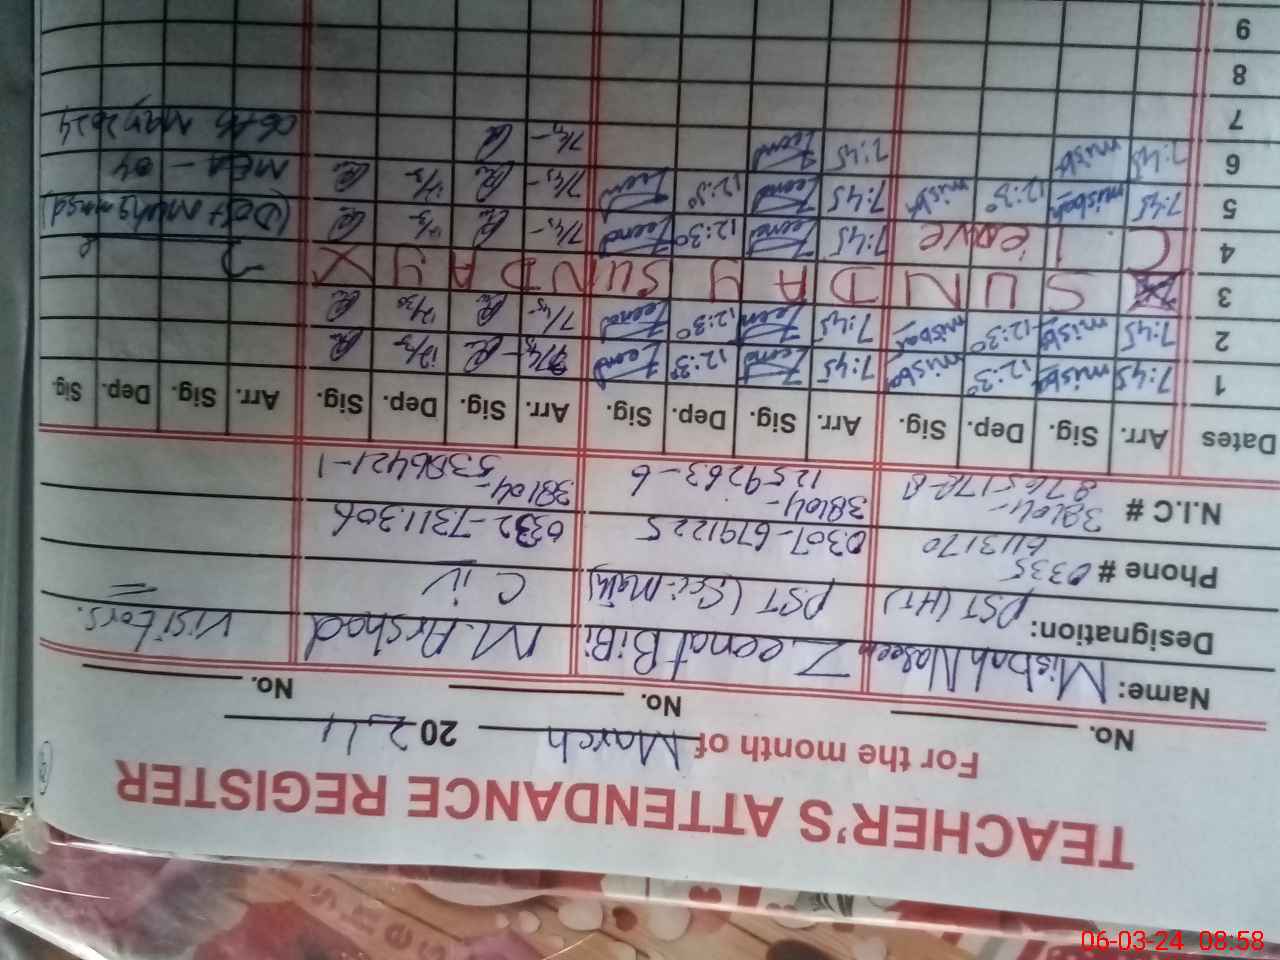 TEACHER'S ATTENDANCE REGISTER
For the month of March 2024
No. No. No.
Name: Misbah Naseem Zeenat BiBi M. Arshad Visitors.
Designation: PST (HT) PST (Sci-Math) C iv
Phone # 0335 6113170 0307-6791225 0332-7311306
N.I.C # 38104- 38104-1259263-6 38104-5386421-1
Dates Arr. Sig. Dep. Sig. Arr. Sig. Dep. Sig. Arr. Sig. Dep. Sig. Arr. Sig. Dep. Sig.
1 7:45 misba 12:30 misba 7:45 Zeend 12:30 Zeend
2 7:45 misba 12:30 misbah 7:45 Zeen 12:30 Zeend 7/45 12/30
3 S U N D A Y SUNDAY X
4 C. leave 7:45 Zeend 12:30 Zeend 7/45-
5 7:45 misbah 12:30 misba 7:45 Zeend 12:30 Zeen 7/45-
6 7:45 misba 7:45 Zeend 7/45-
7
8
9
(Dost Muhammad)
MEA - 04
06th March 2024
06-03-24 08:58